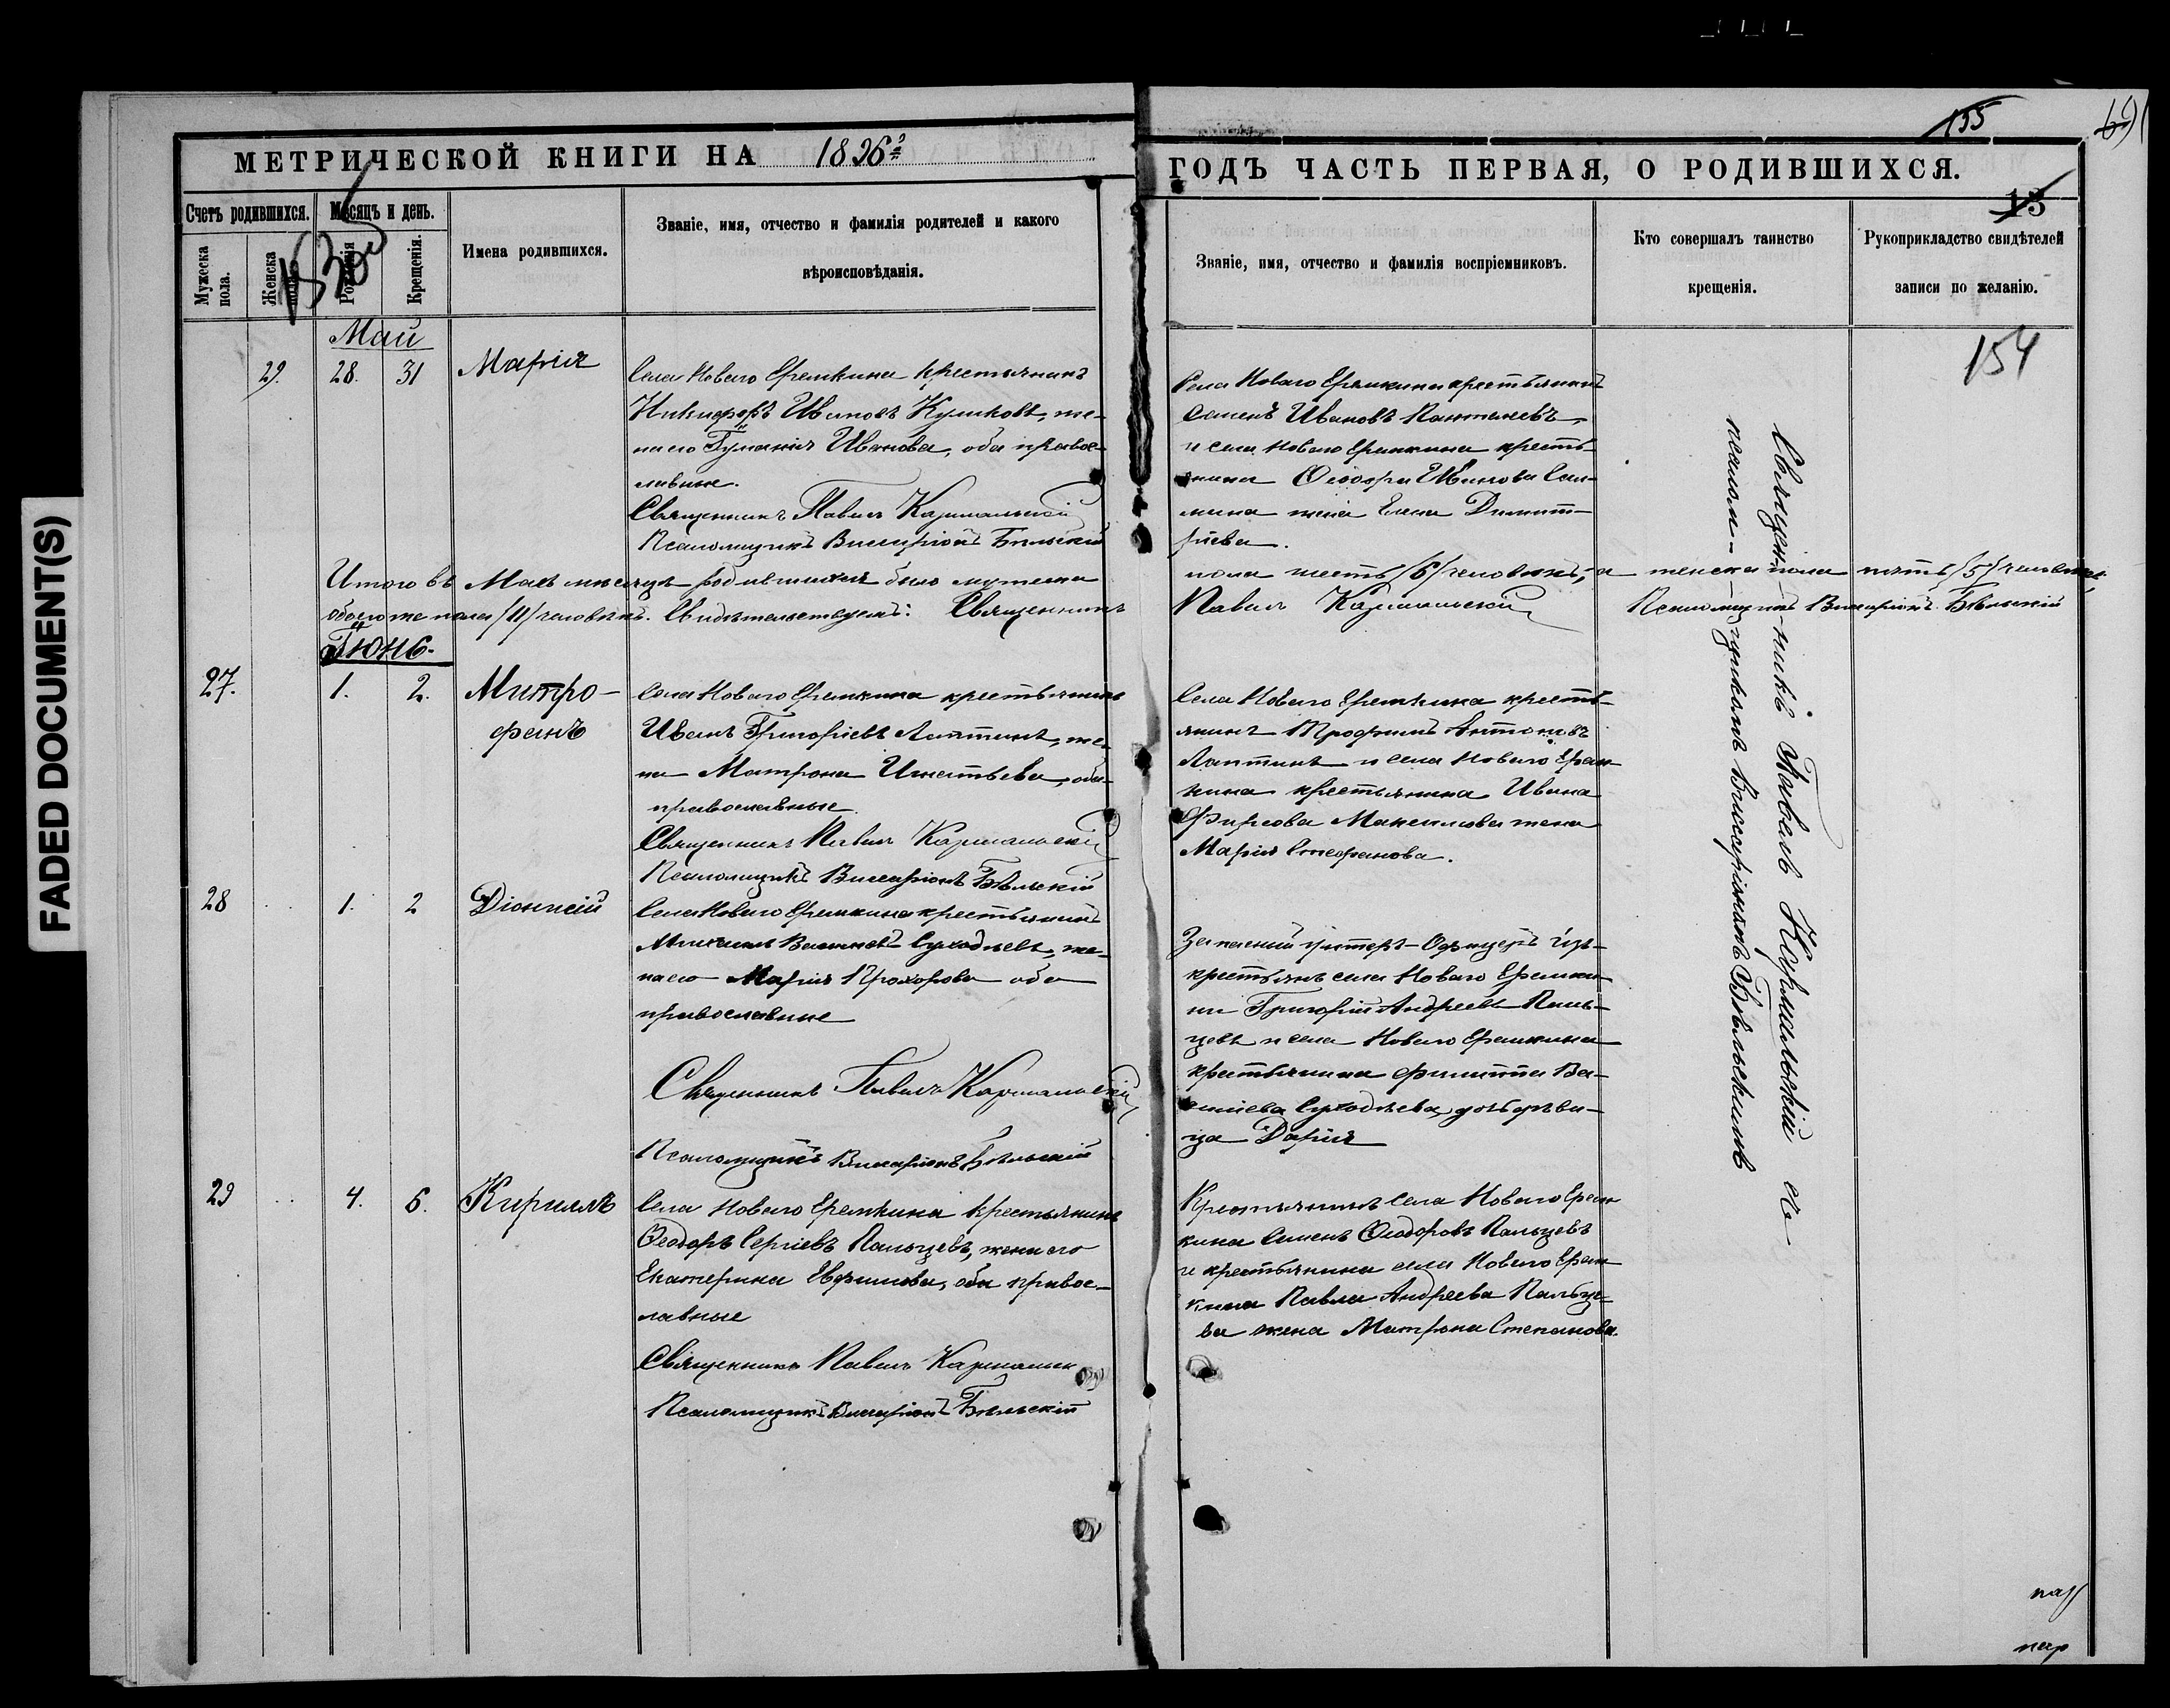 FADED DOCUMENT(S)
155
МЕТРИЧЕСКОЙ КНИГИ НА 1896й
ГОДЪ ЧАСТЬ ПЕРВАЯ, О РОДИВШИХСЯ.
15
Счетъ родившихся.
Мѣсяцъ и день.
Мужеска пола.
Женска пола.
Рожденія
Крещенія.
Имена родившихся.
Званіе, имя, отчество и фамилія родителей и какого
вѣроисповѣданія.
Званіе, имя, отчество и фамилія воспріемниковъ.
Кто совершалъ таинство
крещенія.
Рукоприкладство свидѣтелей
записи по желанію.
154
Май
29. 28. 31 Марія
Села Новаго Еремкина крестьянинъ
Никифоръ Ивановъ Куликовъ, же-
на его Іуліанія Иванова, оба правос-
лавные.
Священникъ Павелъ Кармальскій
Псаломщикъ Виссаріонъ Бѣльскій
Села Новаго Еремкина крестьянинъ
Семенъ Ивановъ Пантелеевъ,
и села Новаго Еремкина кресть-
янина Ѳеодора
жена Елена Димит-
ріева.
Итого въ Маѣ мѣсяцѣ родившихся было мужеска
пола шесть /6/ человѣкъ, а женска пола пять /5/ человѣкъ,
обоего же пола /11/ человѣкъ. Свидѣтельствуемъ: Священникъ
Павелъ Кармальскій
Псаломщикъ Виссаріонъ Бѣльскій
Іюнь.
27. 1. 2. Митро-
фанъ
Села Новаго Еремкина крестьянинъ
Иванъ Григоріевъ Лаптинъ, же-
на Матрона Игнатьева, оба
православные
Священникъ Павелъ Кармальскій
Псаломщикъ Виссаріонъ Бѣльскій
Села Новаго Еремкина кресть-
янинъ Трофимъ Антоновъ
Лаптинъ и села Новаго Ерем-
кина крестьянина Ивана
Фирсова Максимова жена
Марія Стефанова.
28 1. 2 Діонисій
Села Новаго Еремкина крестьянинъ
Михаилъ Суходѣевъ, же-
на его Марія Прохорова оба
православные
Священникъ Павелъ Кармальскій
Псаломщикъ Виссаріонъ Бѣльскій
Запасный унтеръ-Офицеръ изъ
крестьянъ села Новаго Еремки-
на Григорій Андреевъ Паль-
цевъ и села Новаго Еремкина
крестьянина Филиппа Ва-
силіева Суходѣева дочь дѣви-
ца Дарія
29 4. 6. Кириллъ
Села Новаго Еремкина крестьянинъ
Ѳеодоръ Сергіевъ Пальцевъ, жена его
Екатерина Евфимова, оба правос-
лавные
Священникъ Павелъ Кармальск
Псаломщикъ Виссаріонъ Бѣльскій
Крестьянинъ села Новаго Ерем-
кина Семенъ Ѳеодоровъ Пальцевъ
и крестьянина села Новаго Ерем-
кина Павла Андреева Пальце-
ва жена Матрона Степанова.
Священникъ Павелъ Кармальскій съ
псаломщикомъ Виссаріономъ Бѣльскимъ